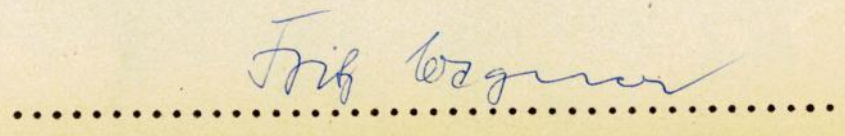 Fritz Wagner